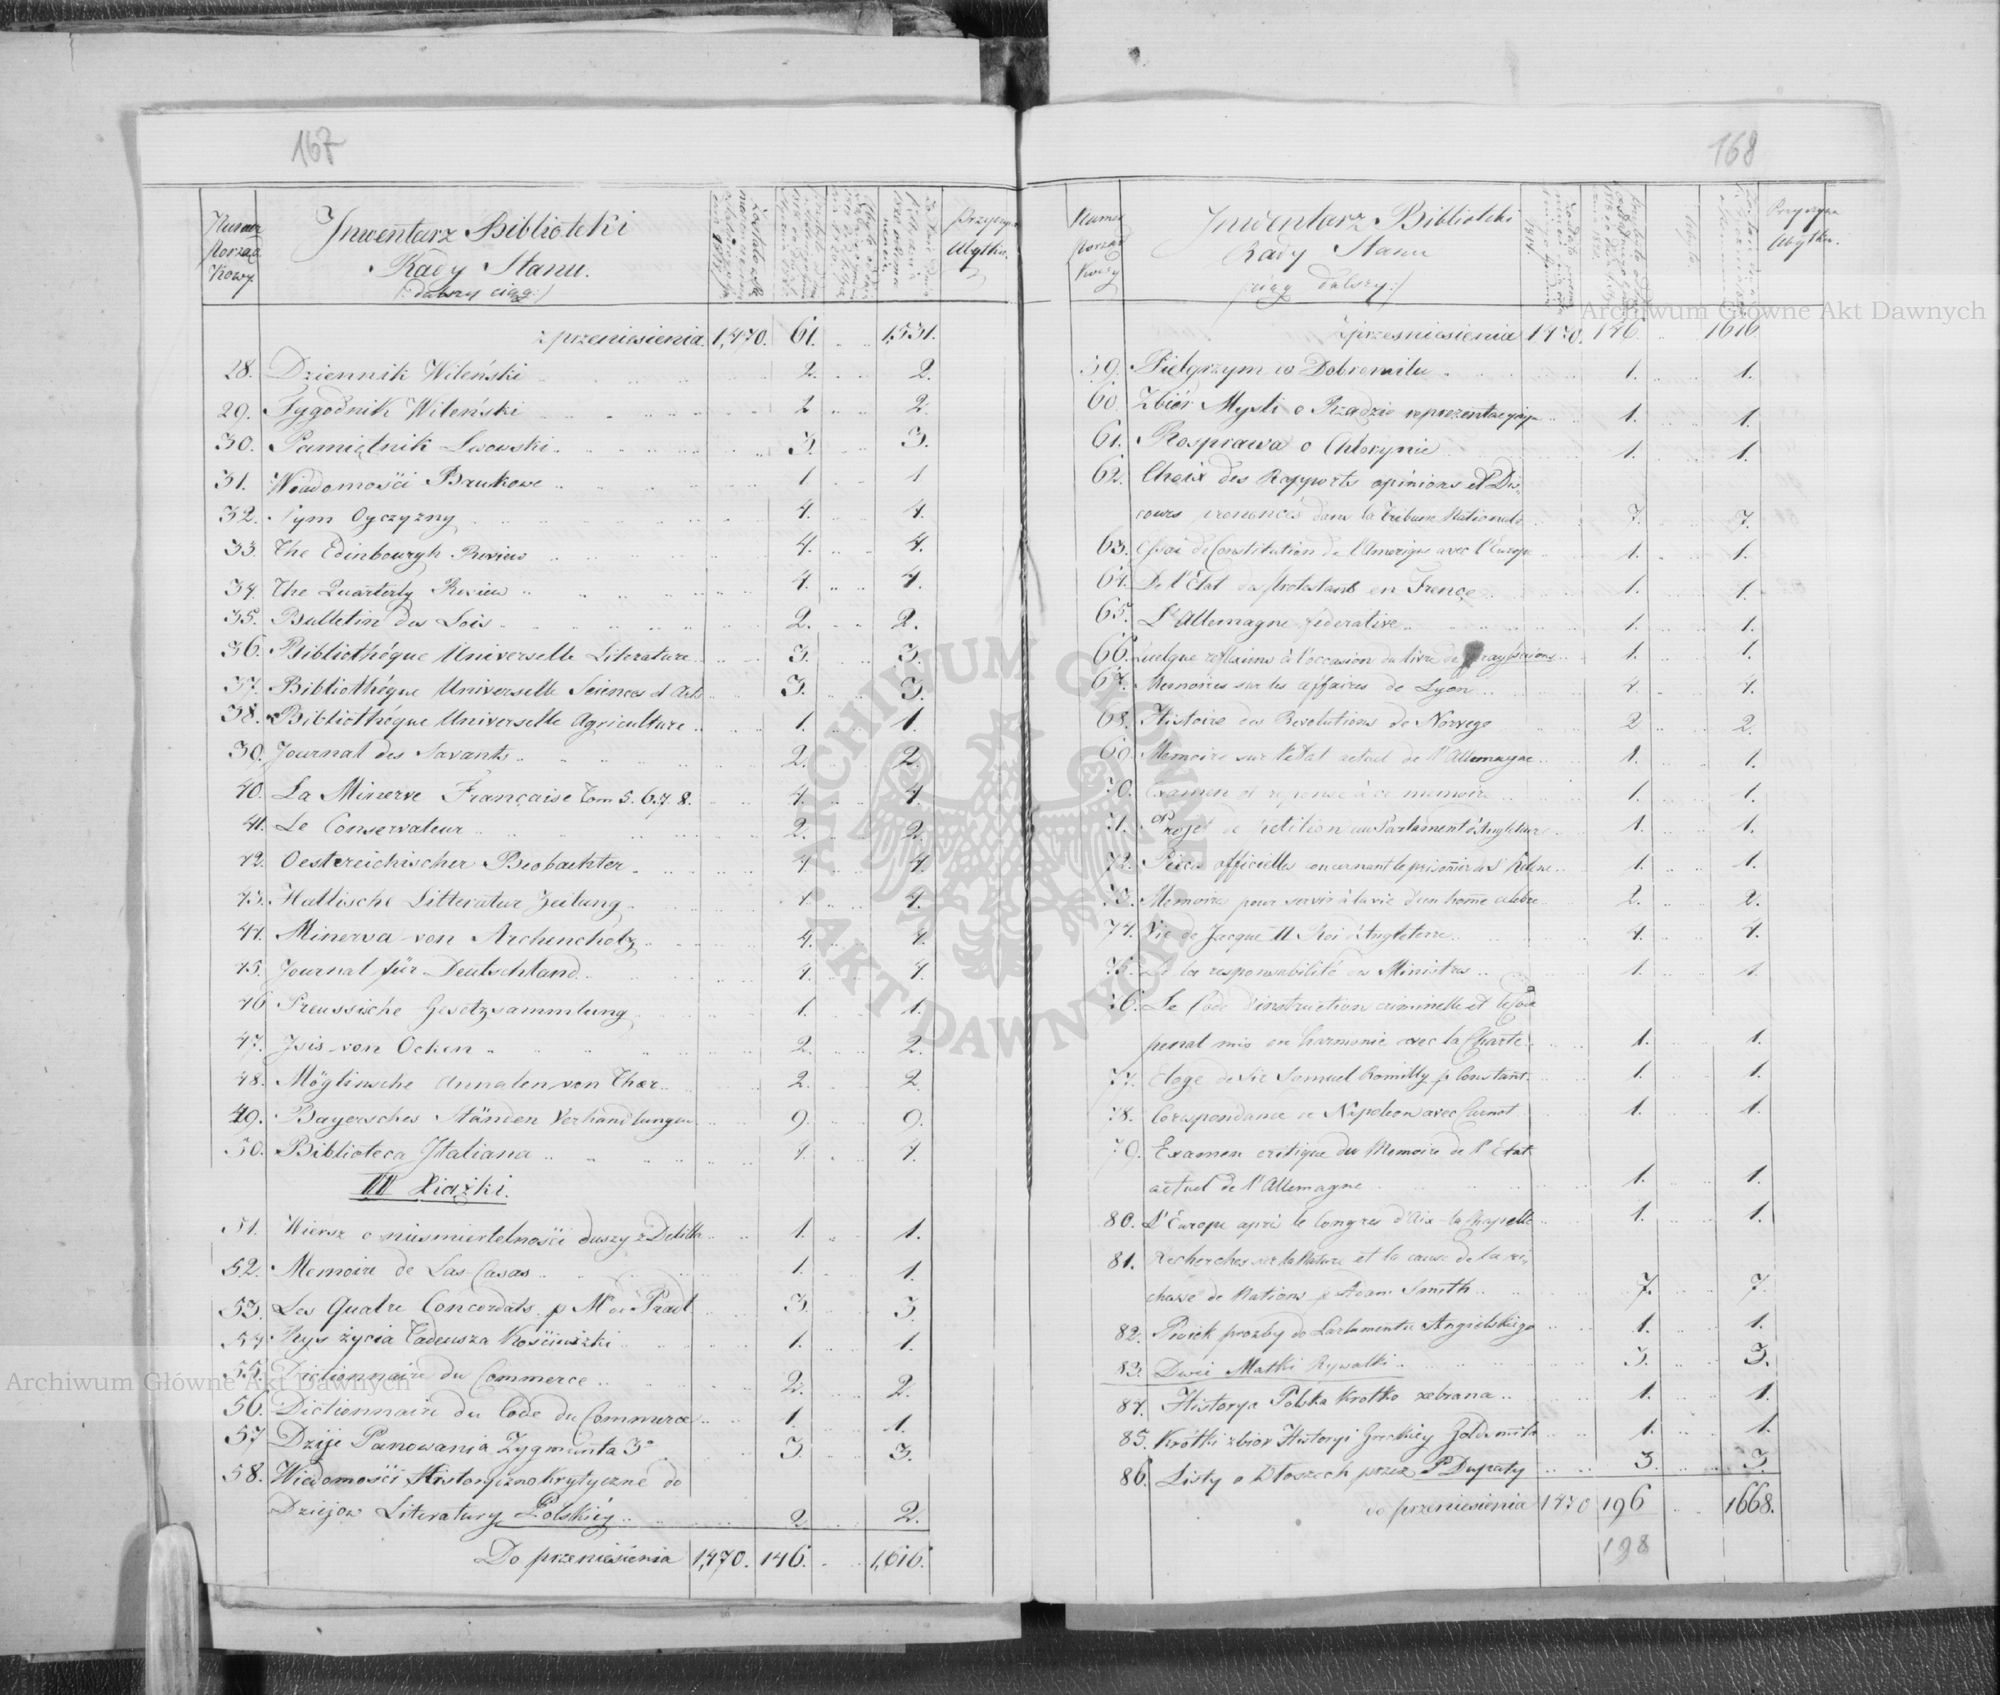 167
Numer
Porząd
kowy.
Inwentarz Biblioteki
Rady Stanu.
(: dalszy ciąg :)
Przyczyna
Ubytku.
z przeniesienia. 1,470. 61. 1,531.
28. Dziennik Wileński 2. 2.
29. Tygodnik Wileński 2 2.
30. Pamiętnik Lwowski 3. 3.
31. Wiadomości Brukowe 1 1
32. Oyczyzny 4. 4.
33. The Edinbourgh Review 4. 4.
34. The Quarterly Review 4. 4.
35. Bulletin des Lois 2. 2.
36. Bibliothéque Universelle Literature 3. 3.
37. Bibliothéque Universelle Sciences et Arts 3. 3.
38. Bibliothéque Universelle Agriculture 1. 1.
39. Journal des Savants 2. 2.
40. La Minerve Française Tom 5. 6. 7. 8. 4. 4.
41. Le Conservateur 2. 2.
42. Oestreichischer Beobachter 4 4.
43. Hallische Litteratur Zeitung 4. 4.
44. Minerva von Archencholz 4. 4.
45. Journal für Deutschland 4. 4.
46 Preussische Gesetzsammlung 1. 1.
47. Isis von Ocken 2. 2.
48. Möglinsche Annalen von Thaer 2. 2.
49. Bayersches Ständen Verhandlungen 9. 9.
50. Biblioteca Italiana 4. 4.
III Xiążki.
51. Wiersz o niesmiertelności duszy z Delilla 1. 1.
52. Memoire de Las Casas 1. 1.
53. Les Quatre Concordats p Mr de Pradt 3. 3.
54 Rys życia Tadeusza Kościuszki 1. 1.
55. Dictionnaire du Commerce 2. 2.
56. Dictionnaire du Code du Commerce 1. 1.
57 Dzieje Panowania Zygmunta 3o 3. 3.
58. Wiadomości Historyczno Krytyczne do
Dziejow Literatury Polskiéy 2. 2.
Do przeniesienia 1,470. 146. 1,616.
168
Numer
Porząd
kowy
Inwentarz Biblioteki
Rady Stanu
ciąg dalszy :/
Przyczyna
Ubytku.
z przeniesienia 1470. 146. 1616.
59. Pielgrzym w Dobromilu 1. 1.
60. Zbiór Myśli o Rządzie reprezentacyjn 1. 1.
61. Rosprawa o Chlorynie 1. 1.
62. Choix des Rapports opinions et Dis,
cours prononcés dans la Tribune Nationale 7. 7.
63. Essai de Constitution de l'Amerique avec l'Europe 1. 1.
64. De l'Etat des Protestants en France 1. 1.
65. L'Allemagne federative 1. 1.
66. Quelque reflexions à l'occasion du livre de 1. 1.
67. Memoires sur les affaires de Lyon 4. 4.
68. Histoire des Revolutions de Norvege 2 2.
69. Memoire sur l'etat actuel de l'Allemagne 1. 1.
70. Examen et reponse à ce memoire 1. 1.
71. Projet de Petition au Parlament d'Angleterre 1. 1.
72. Pieces officielles concernant le prisonnier de St Helene 1. 1.
73. Memoires pour servir à la vie d'un home celebre 2. 2.
74. Vie de Jacque II Roi d'Angleterre 4. 4.
75. De la responsabilité des Ministres 1. 1.
76. Le Code d'instruction criminelle et le Code
penal mis en harmonie avec la Charte 1. 1.
77. Eloge de Sir Samuel Romilly p Constant. 1. 1.
78. Corespondance de Napoleon avec Carnot 1. 1.
79. Examen critique du Memoire de l'Etat
actuel de l'Allemagne 1. 1.
80. L'Europe après le Congres d'Aix la Chapelle 1. 1.
81. Recherches sur la Nature et la cause de la ri,
chesse de Nations p Adam Smith 7. 7.
82. prozby do Parlamentu Angielskiego 1. 1.
83. Dwie Matki Rywalki 3. 3.
84. Historya Polska krotko zebrana 1. 1.
85. Krótki zbior Historyi Greckiey Goldsmitha 1. 1.
86. Listy o Włoszech przez P Dupaty 3. 3.
do przeniesienia 1470 196 1668.
198
Archiwum Główne Akt Dawnych
Archiwum Główne Akt Dawnych
ARCHIWUM GŁÓWNE AKT DAWNYCH